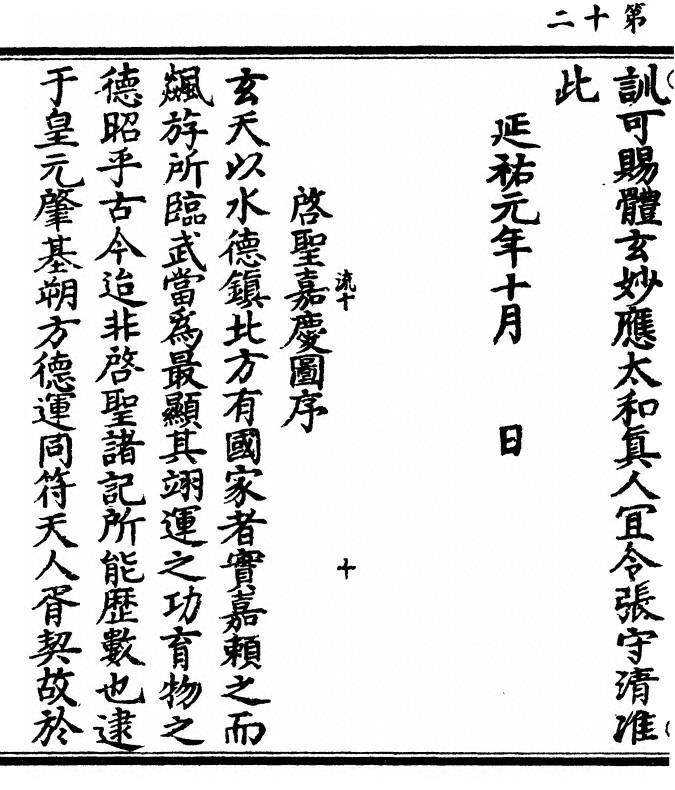 第十二
訓可賜體玄妙應太和眞人冝令張守清准
此
延祐元年十月　日
流十　十
啓聖嘉慶圖序
玄天以水德鎭北方有國家者實嘉賴之而
飊斿所臨武當爲最顯其翊運之功育物之
德昭乎古今迨非啓聖諸記所能歷數也逮
于皇元肇基朔方德運同符天人胥契故於